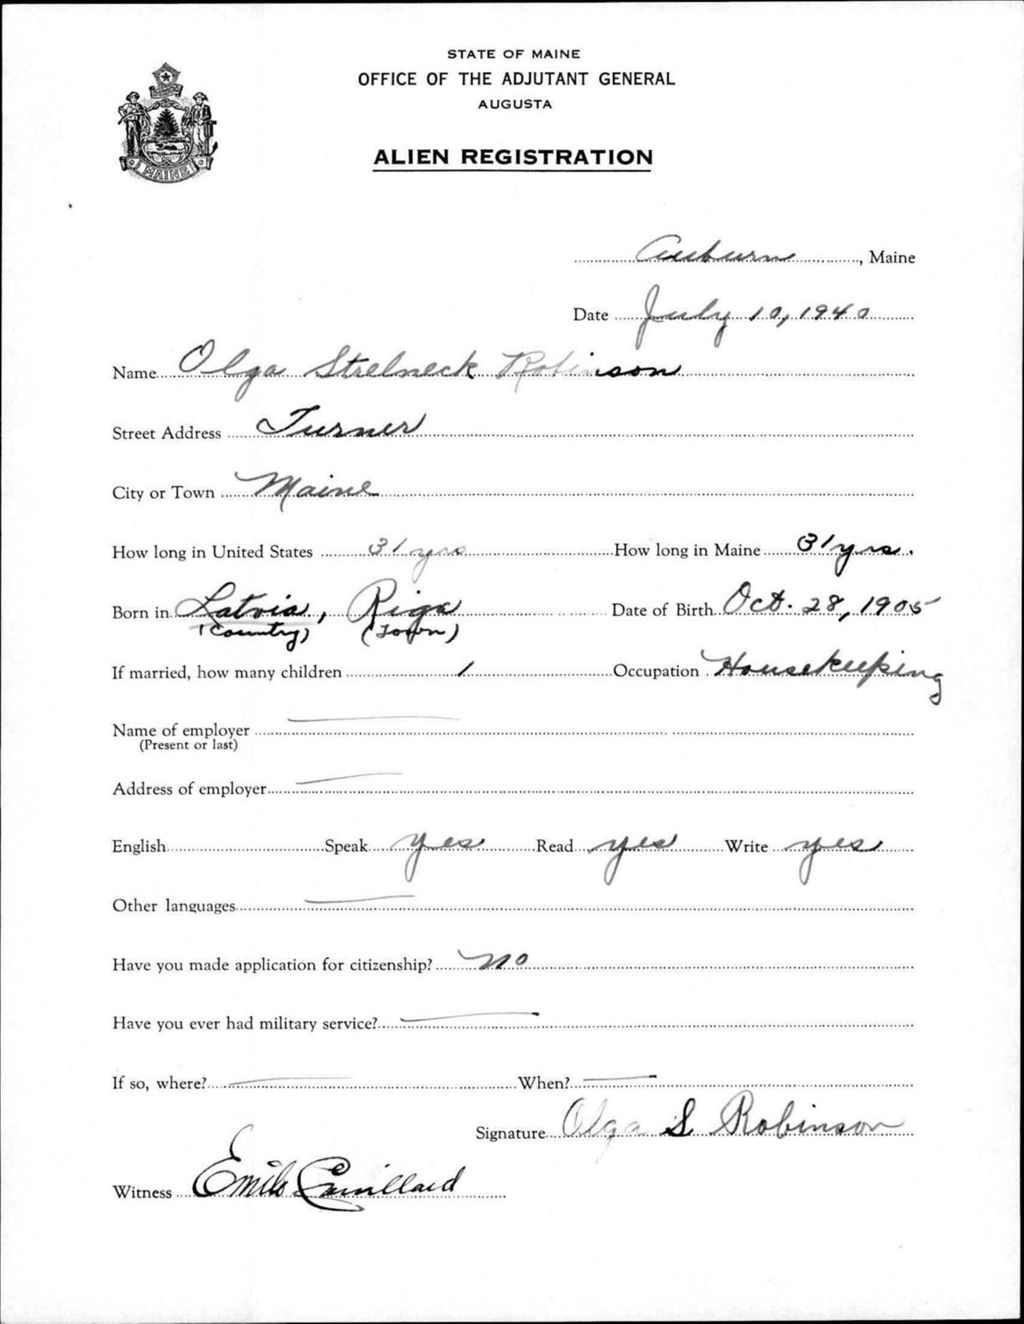 STATE OF MAINE
OFFICE OF THE ADJUTANT GENERAL
AUGUSTA
ALIEN REGISTRATION
MAINE
Auburn, Maine
Date July 10, 1940
Name Olga Strelneck Robinson
Street Address Turner
City or Town Maine
How long in United States 31 yrs How long in Maine 31 yrs.
Born in Latvia, Riga Date of Birth Oct. 28, 1905
(Country) (Town)
If married, how many children 1 Occupation Housekeeping
Name of employer
(Present or last)
Address of employer
English Speak yes Read yes Write yes
Other languages
Have you made application for citizenship? no
Have you ever had military service?
If so, where? When?
Signature Olga S Robinson
Witness